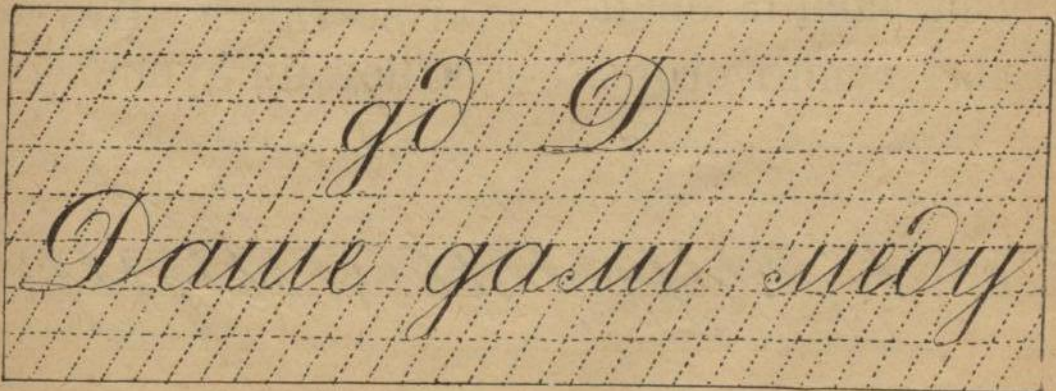 дд Д
Даше дали меду